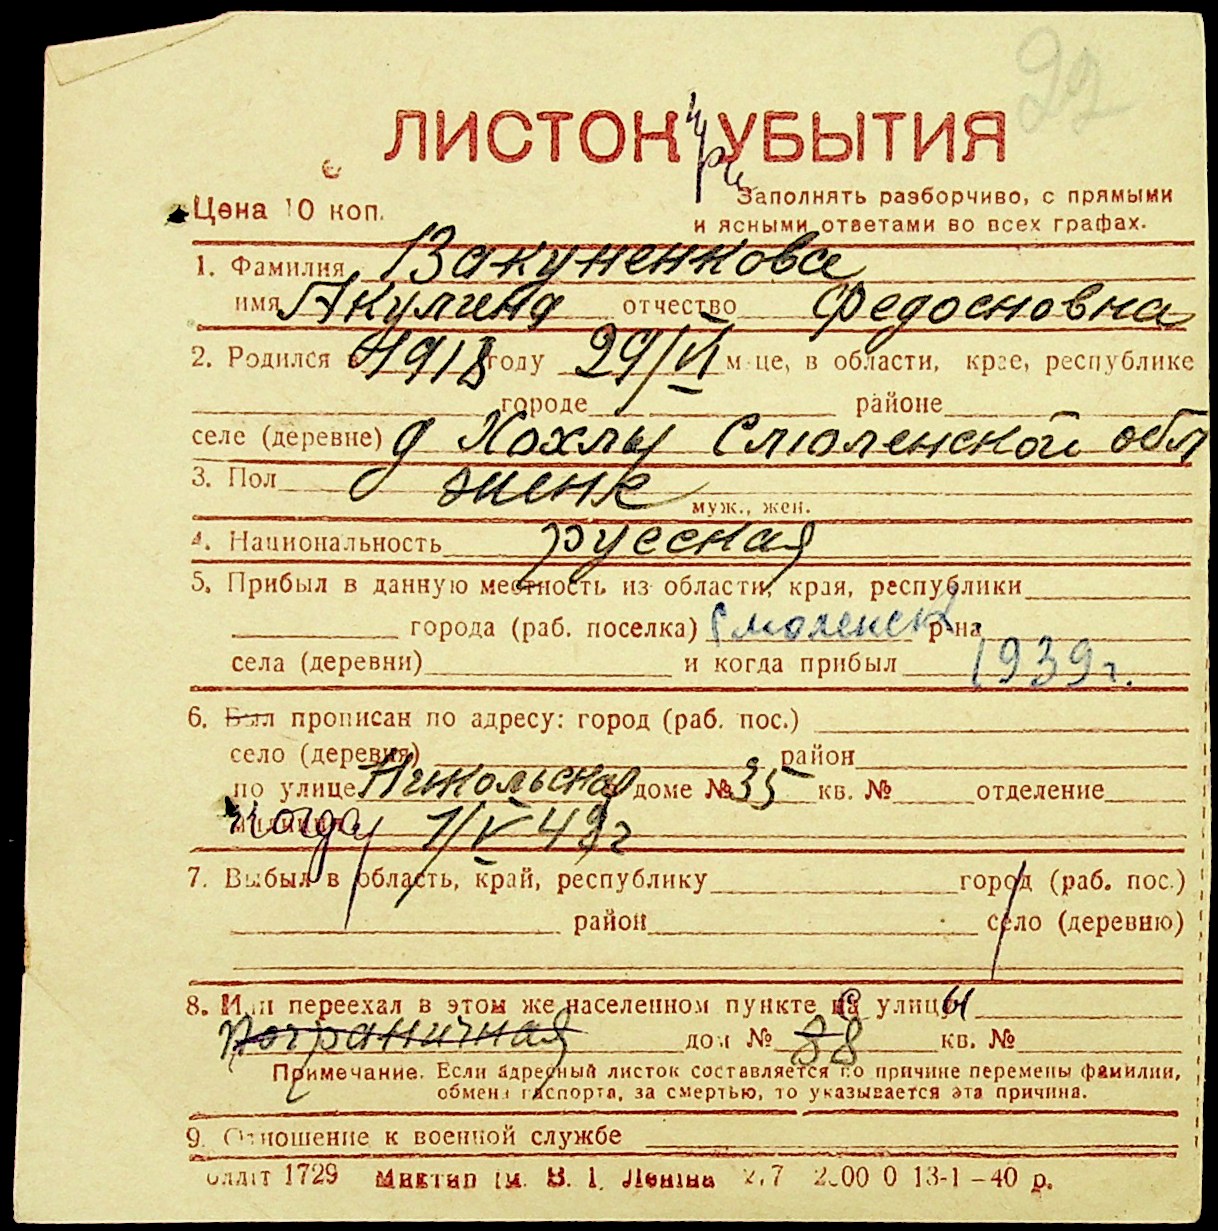 22
ЛИСТОК УБЫТИЯ
Цена 10 коп.
Заполнять разборчиво, с прямыми
и ясными ответами во всех графах.
1. Фамилия Вакуненкова
имя Акулина отчество Федосновна
2. Родился в 1918 году 29/VI м-це, в области, крае, республике
городе районе
селе (деревне) д Хохлы Смоленской обл
3. Пол женс
муж., жен.
4. Национальность русская
5. Прибыл в данную местность из области, края, республики
города (раб. поселка) Смоленск р-на
села (деревни) и когда прибыл 1939 г.
6. Был прописан по адресу: город (раб. пос.)
село (деревня) район
по улице Никольская доме № 35 кв. № отделение
когда 1/V 42 г
7. Выбыл в область, край, республику город (раб. пос.)
район село (деревню)
8. Или переехал в этом же населенном пункте с улицы
Пограничная дом № 88 кв. №
Примечание. Если адресный листок составляется по причине перемены фамилии,
обмена паспорта, за смертью, то указывается эта причина.
9. Отношение к военной службе
1729 Миктип ім. В. І. Леніна 2.7 2000 0 13-1-40 р.